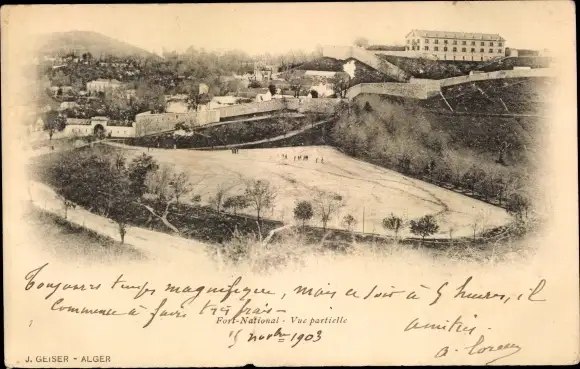 Toujours temps magnifique, mais ce soir à 5 heures, il
commence à faire très frais -
Fort-National - Vue partielle
15 novbre 1903
amitiés
J. GEISER - ALGER